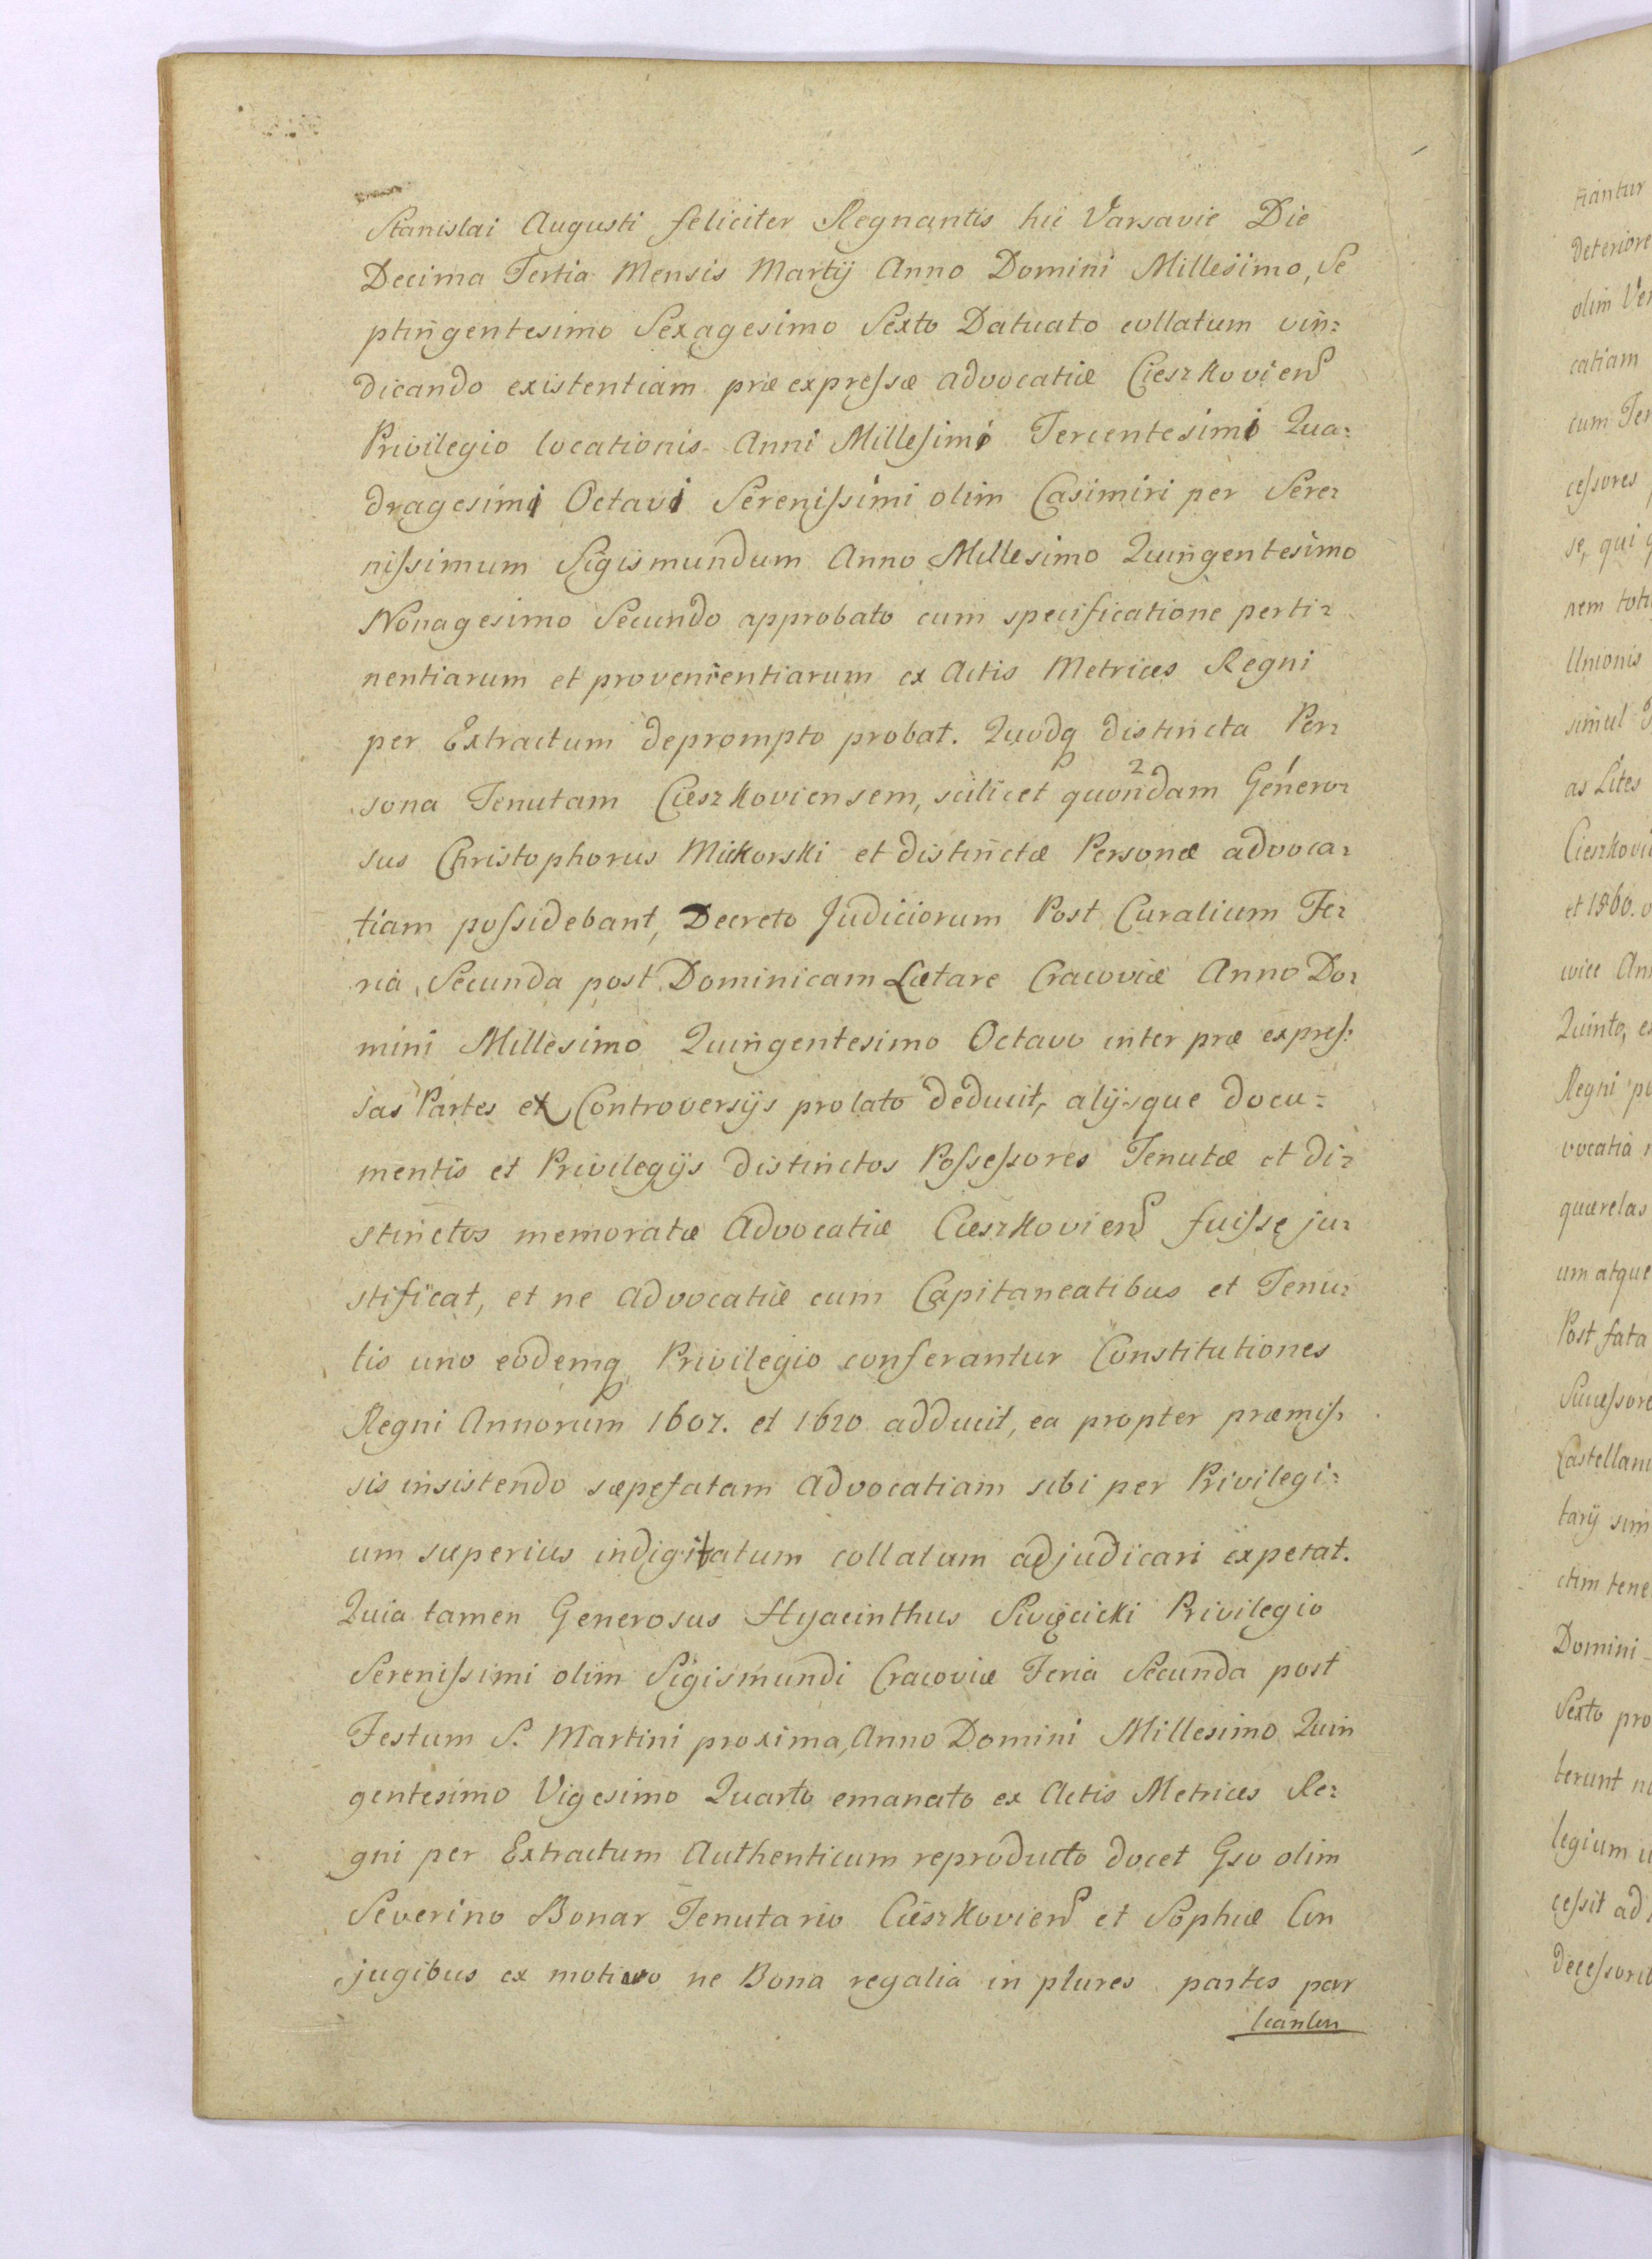 Stanislai Augusti feliciter Regnantis hic Varsavie Die
Decima Tertia Mensis Martij Anno Domini Millesimo, Se
ptingentesimo Sexagesimo Sexto Datuato collatum vin:
dicando existentiam præ expreſsæ advocatiæ Cieszkoviens
Privilegio locationis Anni Milleſimi Tercentesimi Qua:
dragesimi Octavi Sereniſsimi olim Casimiri per Sere:
niſsimum Sigismundum Anno Millesimo Quingentesimo
Nonagesimo Secundo approbato cum specificatione perti:
nentiarum et provenientiarum ex Actis Metrices Regni
per Extractum deprompto probat. Quodq distincta Per:
sona Tenutam Cieszkoviensem, scilicet quondam Genero:
sus Christophorus Mikorski et distinctæ Personæ advoca:
tiam poſsidebant, Decreto Judiciorum Post Curalium Fe:
ria Secunda post Dominicam Lætare Cracoviæ Anno Do:
mini Millesimo Quingentesimo Octavo inter præ expreſ:
sas Partes et Controversijs prolato deducit, alijsque docu:
mentis et Privilegijs distinctos Poſseſsores Tenutæ et di:
stinctos memoratæ Advocatiæ Cieszkoviens fuiſse ju:
stificat, et ne advocatiæ cum Capitaneatibus et Tenu:
tis uno eodemq Privilegio conferantur Constitutiones
Regni Annorum 1607. et 1620 adducit, ea propter præmiſ:
sis insistendo sæpefatam advocatiam sibi per Privilegi:
um superius indigitatum collatam adjudicari expetat.
Quia tamen Generosus Hyacinthus Siwięcicki Privilegio
Sereniſsimi olim Sigismundi Cracoviæ Feria Secunda post
Festum S. Martini proxima, Anno Domini Millesimo Quin
gentesimo Vigesimo Quarto emanato ex Actis Metrices Re:
gni per Extractum Authenticum reproducto docet Gso olim
Severino Bonar Tenutario Cieszkoviens et Sophiæ Con
jugibus ex motivo ne Bona regalia in plures partes par
tiantur
tiantur
deteriore
olim Ver
catiam
cum Ten
ceſsores
se, qui q
nem toti
Unionis
simul
as Lites
Cieszkovi
et 1560.
Quinto, e
Regni pe
vocatia
querelas
um atque
Post fata
Succeſsore
Castellani
tarij sim
ctim tene
Domini
Sexto pro
terunt
legium
ceſsit ad
deceſsorib